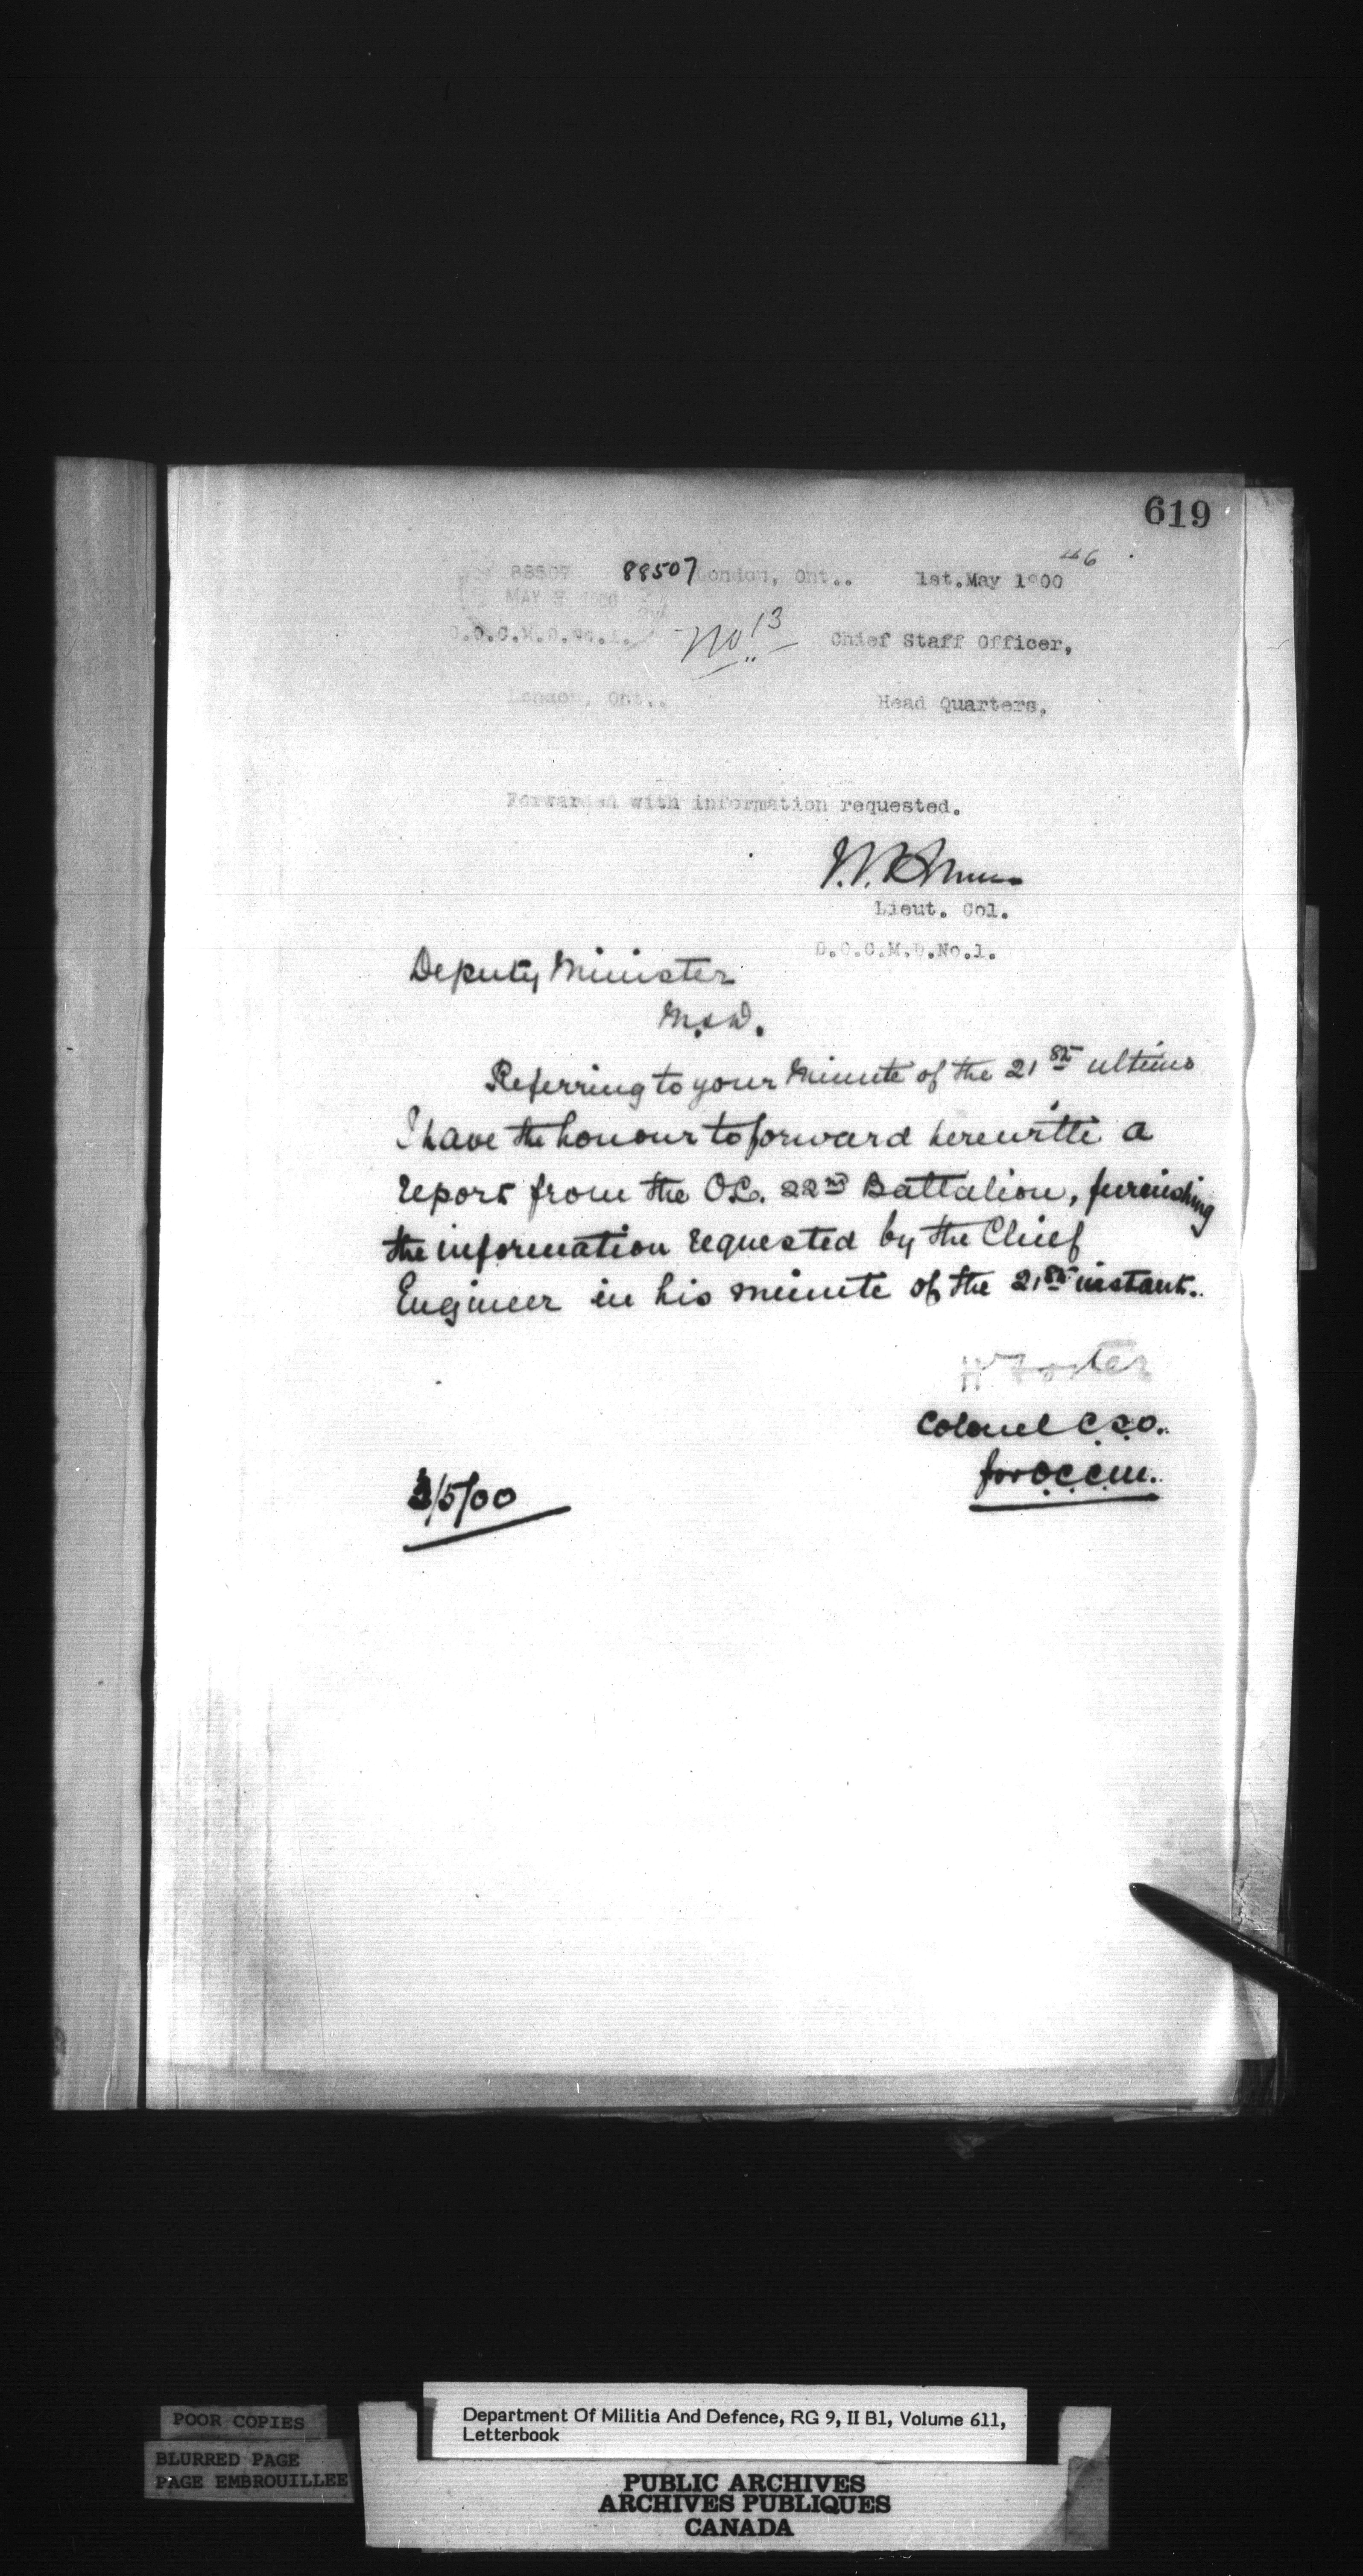 619
88507 88507 London, Ont.. 1st.May 1900
MAY 1900
D.O.C.M.D.No.1. No 13 Chief Staff Officer,
London, Ont.. Head Quarters,
Forwarded with information requested.
Lieut. Col.
D.O.C.M.D.No.1.
Deputy Minister
M. & D.
Referring to your Minute of the 21st ultimo
I have the honour to forward herewith a
report from the O.C. 22nd Battalion, furnishing
the information requested by the Chief
Engineer in his minute of the 21st instant.
H Foster
Colonel C.S.O.
for O.C.C.M.
3/5/00
POOR COPIES
BLURRED PAGE
PAGE EMBROUILLEE
Department Of Militia And Defence, RG 9, II B1, Volume 611,
Letterbook
PUBLIC ARCHIVES
ARCHIVES PUBLIQUES
CANADA